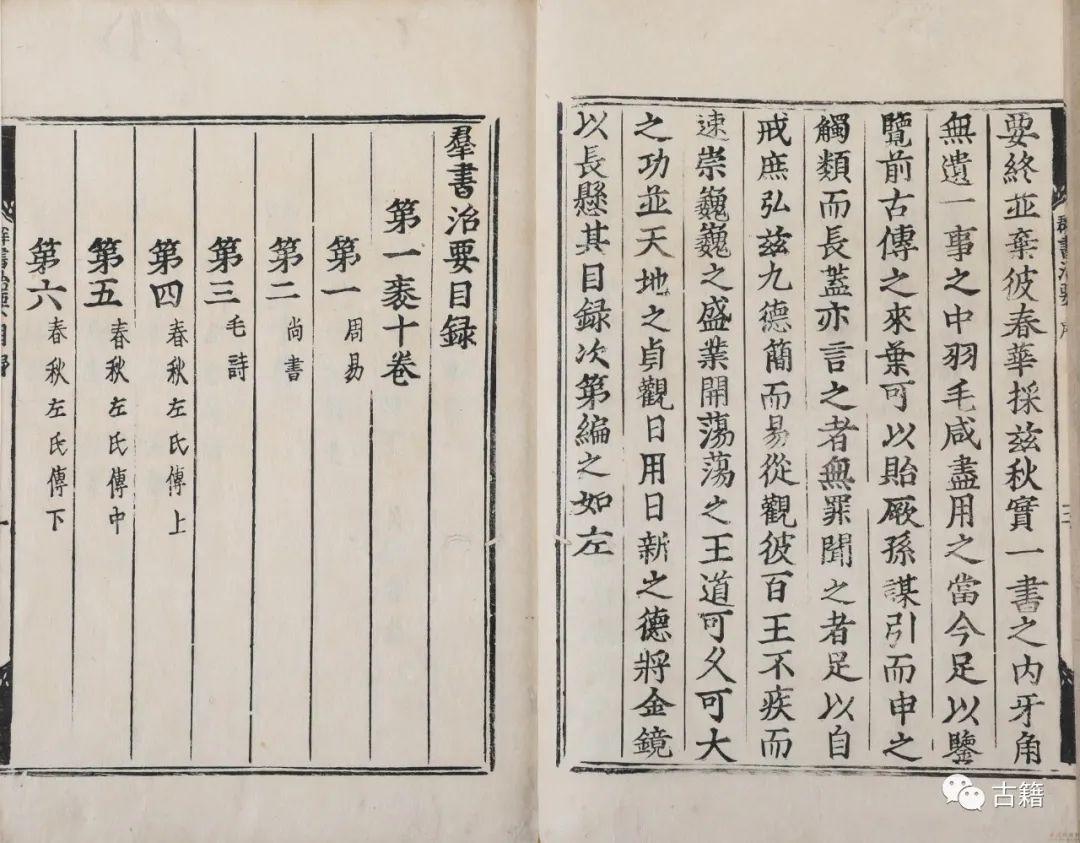 要終並棄彼春華採茲秋實一書之內牙角
無遺一事之中羽毛咸盡用之當今足以鑒
覽前古傳之來葉可以貽厥孫謀引而申之
觸類而長蓋亦言之者無罪聞之者足以自
戒庶弘茲九德簡而易從觀彼百王不疾而
速崇巍巍之盛業開蕩蕩之王道可久可大
之功並天地之貞觀日用日新之德將金鏡
以長懸其目録次第編之如左
群書治要 序
三
羣書治要目録
第一袠十卷
第一 周易
第二 尚書
第三 毛詩
第四 春秋左氏傳上
第五 春秋左氏傳中
第六 春秋左氏傳下
群書治要 目
一
古籍